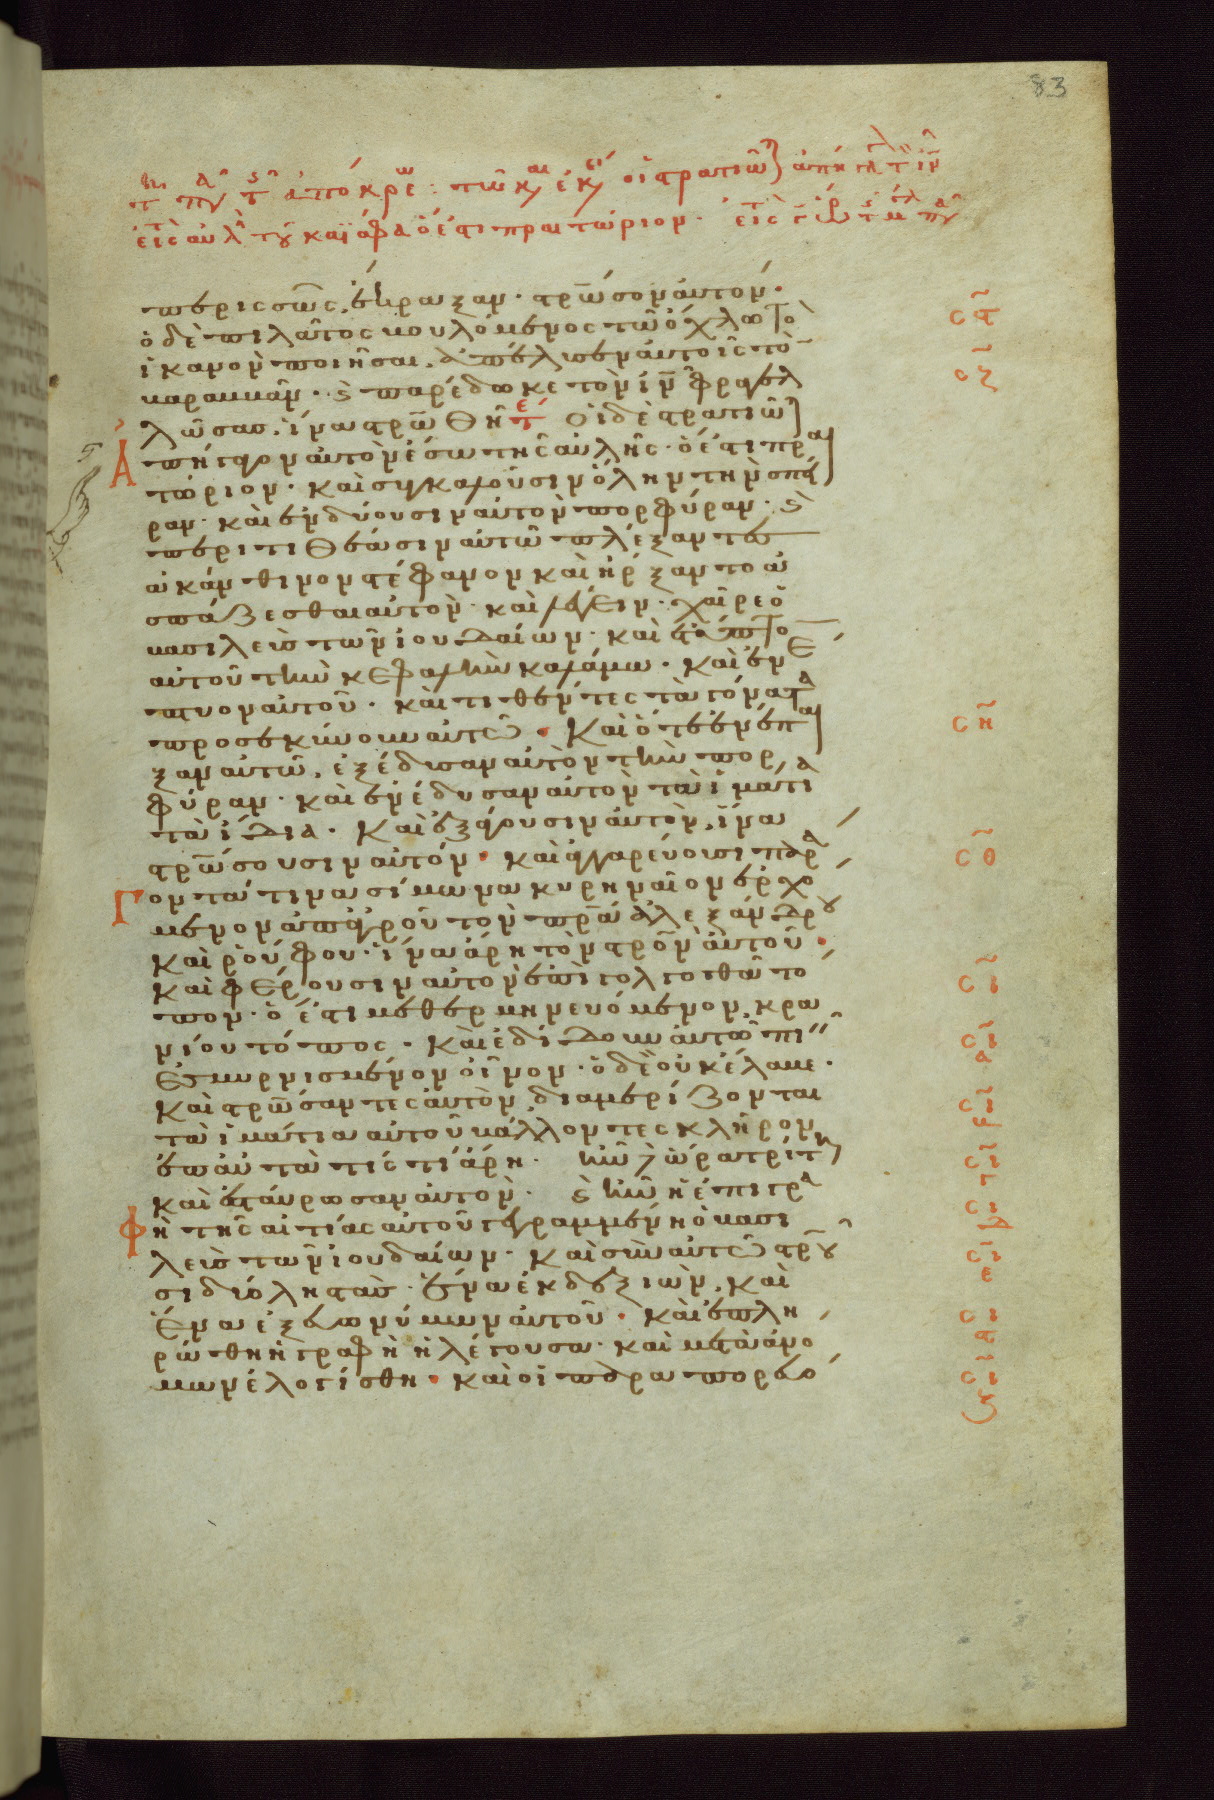 83
εἰς αὐλ τȣ καϊάφα ὅ ἐστι πραιτώριον·
περισσῶς ἔκραξαν· στρ̅ωσον αὐτον·
ὁ δὲ πιλᾶτος βουλόμενος τῶ ὄχλω το
ἱκανὸν ποιῆσαι, ἀπέλυσεν αὐτοῖς τὸ
βαραββᾶν· ϗ παρέδωκε τὸν ι̅ν̅ φραγελ
λώσας, ἵνα στρ̅ωθῆ τε Οἱ δὲ στρατιῶτ
ἀπήγαγον αὐτὸν ἔσω τῆς αὐλῆς· ὅ ἐστι πραι
τώριον· καὶ συγκαλοῦσιν ὅλην τὴν σπεῖ
ραν· καὶ ἐνδύουσιν αὐτὸν πορφύραν· ϗ
περιτιθέασιν αὐτῶ πλέξαντες
ἀκάνθινον στέφανον καὶ ἤρξαντο ἀ
σπάζεσθαι αὐτὸν· καὶ λέγειν· χαῖρε ὁ
βασιλεὺς τῶν ἰουδαίων· καὶ ἔτυπτο
αὐτοῦ τὴν κεφαλὴν καλάμω· καὶ ἐνέ
πτυον αὐτοῦ· καὶ τιθέντες τὰ γόνατα
προσεκύνουν αὐτῶ· Καὶ ὅτε ἐνέπαι
ξαν αὐτῶ, ἐξέδυσαν αὐτὸν τὴν πορ
φύραν· καὶ ἐνέδυσαν αὐτὸν τὰ ἱμάτια
τὰ ἴδια· Καὶ ἐξάγουσιν αὐτὸν, ἵνα
στρ̅ωσουσιν αὐτόν· καὶ ἀγγαρεύουσι παρά
γοντά τινα σίμωνα κυρηναῖον ἐρχό
μενον ἀπ ἀγροῦ τὸν πρ̅α ἀλεξάνδρου
καὶ ῥούφου· ἵνα ἄρη τὸν στρ̅ον αὐτοῦ·
καὶ φέρουσιν αὐτὸν ἐπὶ γολγοθᾶ το
πον· ὅ ἐστι μεθερμηνευόμενον, κρα
νίου τόπος· Καὶ ἐδίδουν αὐτῶ πι
ἐσμυρνισμένον οἶνον· ὁ δὲ οὐκ ἔλαβε·
Καὶ στρ̅ωσαντες αὐτὸν, διαμερίζονται
τὰ ἱμάτια αὐτοῦ βάλλοντες κλῆρον
ἐπ αὐτὰ τίς τί ἄρη· ἦν δὲ ὥρα τρίτη
καὶ ἐσταύρωσαν αὐτὸν· ϗ ἦν ἡ ἐπιγρα
φὴ τῆς αἰτίας αὐτοῦ γεγραμμένη ὁ βασι
λεὺς τῶν ἰουδαίων· Καὶ σὺν αὐτῶ στρ̅ου
σι δύο ληστὰς· ἕνα ἐκ δεξιῶν, καὶ
ἕνα ἐξ εὐωνύμων αὐτοῦ· καὶ ἐπλη
ρώθη ἡ γραφὴ ἡ λέγουσα· καὶ μετὰ ἀνό
μων ἐλογίσθη· καὶ οἱ παραπορευό